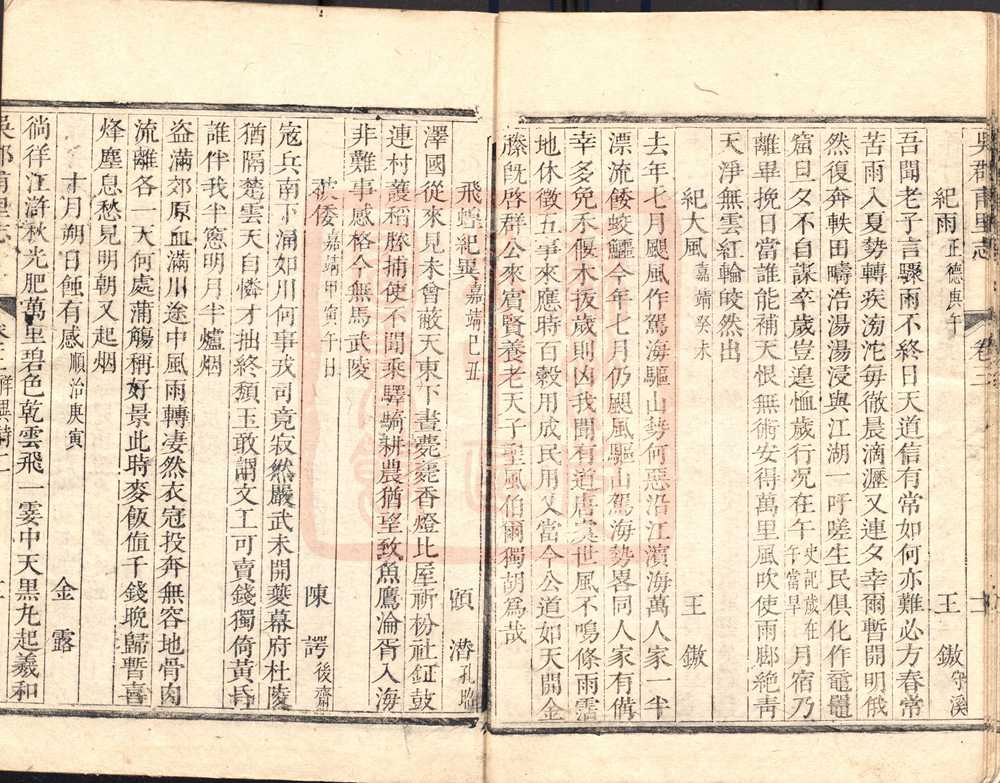 吳郡甫里志 卷三
紀雨 正德庚午 王鏊 守溪
吾聞老子言驟雨不終日天道信有常如何亦難必方春常
苦雨入夏勢轉疾滂沱每徹晨滴瀝又連夕幸爾暫開明俄
然復奔軼田疇浩湯湯浸與江湖一吁嗟生民俱化作黿鼉
窟旦夕不自謀卒歲豈遑恤歲行况在午 史記歲在午當旱 月宿乃
離畢挽日當誰能補天恨無術安得萬里風吹使雨脚絶靑
天淨無雲紅輪皎然出
紀大風 嘉靖癸未 王鏊
去年七月颶風作駕海驅山勢何惡沿江濱海萬人家一半
漂流倭蛟鱷今年七月仍颶風驅山駕海勢畧同人家有備
幸多免禾偃木拔歲則凶我聞有道唐虞世風不鳴條雨霑
地休徵五事來應時百穀用成民用乂當今公道如天開金
縢旣啓群公來賓賢養老天子聖風伯爾獨胡爲哉
飛蝗紀異 嘉靖己丑 顧潛 孔昭
澤國從來見未曾蔽天東下晝薨薨香燈比屋祈枌社鉦鼓
連村護稻塍捕使不聞乘驛騎耕農猶望致魚鷹淪胥入海
非難事感格今無馬武陵
欸倭 嘉靖甲寅午日 陳諤 後齋
寇兵南下涌如川何事戎司竟寂然嚴武未開蓮幕府杜陵
猶隔楚雲天自憐才抽終頹玉敢謂文工可賣錢獨倚黃昏
誰伴我半窻明月半爐烟
盜滿郊原血滿川途中風雨轉凄然衣冠投奔無容地骨肉
流離各一天何處蒲觴稱好景此時麥飯值千錢晩歸暫喜
烽塵息愁見明朝又起烟
十月朔日蝕有感 順治庚寅 金露
徜徉江滸秋光肥萬里碧色乾雲飛一霎中天黑丸起羲和
吳郡甫里志 卷三 祥異詩二